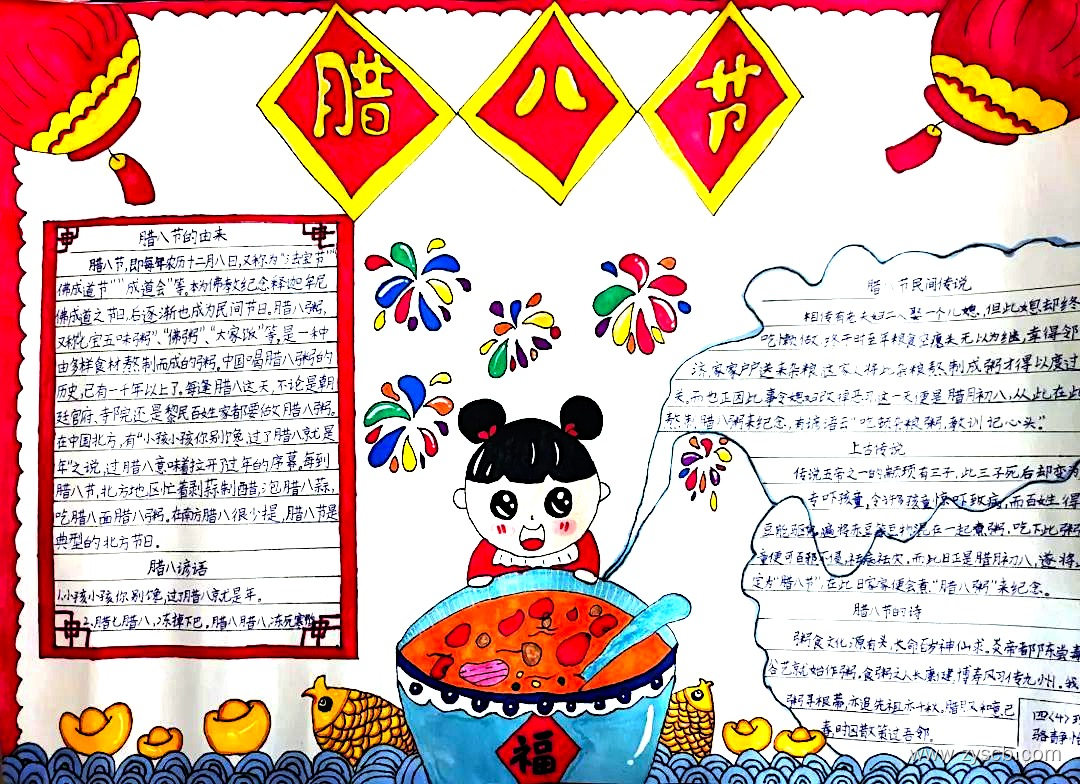 腊八节
腊八节的由来
腊八节,即每年农历十二月八日,又称为“法宝节”
“佛成道节”“成道会”等。本为佛教纪念释迦牟尼
佛成道之节日,后逐渐也成为民间节日。腊八粥,
又称“七宝五味粥”、“佛粥”、“大家饭”等,是一种
由多样食材熬制而成的粥。中国喝腊八粥的
历史,已有一千年以上了。每逢腊八这天,不论是朝
廷官府、寺院还是黎民百姓家都要做腊八粥。
在中国北方,有“小孩小孩你别馋,过了腊八就是
年”之说,过腊八意味着拉开了过年的序幕。每到
腊八节,北方地区忙着剥蒜制醋,泡腊八蒜,
吃腊八面腊八粥。在南方腊八很少提,腊八节是
典型的北方节日。
腊八谚语
1.小孩小孩你别馋,过了腊八就是年。
2.腊七腊八,冻掉下巴。腊七腊八,冻死寒鸦
腊八节民间传说
相传有老夫妇二人娶一个儿媳,但此媳却终
吃懒做,终于时至年粮食
济,家家户户送来杂粮,这家人将此杂粮熬制成粥才得以度过
关,而也正因此事令媳妇改掉恶习,这一天便是腊月初八,从此在此
熬制腊八粥来纪念,有谚语云“吃顿杂粮粥,教训记心头。”
上古传说
传说五帝之一的颛顼有三子,此三子死后却变为
专吓孩童,令许多孩童惊吓致病,而百姓得
豆能驱鬼,遍将赤豆 在一起煮粥,吃下此粥
童便可百邪不侵,祛疾祛灾,而此日正是腊月初八,遂将
定为“腊八节”,在此日家家便会煮“腊八粥”来纪念。
腊八节的诗
粥食文化源有头,大命百岁神仙求。炎帝都邑陈崇
谷艺就始作粥。食粥之人长康健,博寿风习传九州。
粥寻根
春时因散第过吾邻。
四(4)班
骆静怡
福
www.zyscb.com